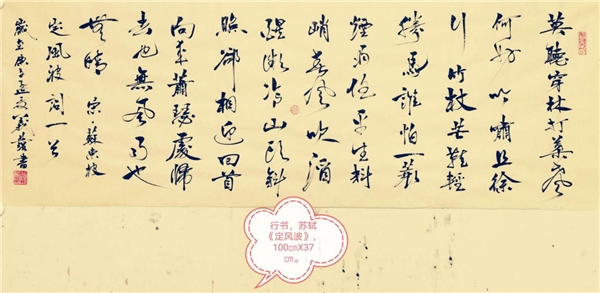 莫聽穿林打葉聲
何妨吟嘯且徐
行竹杖芒鞋輕
勝馬誰怕一蓑
煙雨任平生料
峭春風吹酒
醒微冷山頭斜
照卻相迎回首
向來蕭瑟處歸
去也無風雨也
無晴 宋·蘇東坡
定風波詞一首
歲至庚子 書
行书，苏轼
《定风波》，
100cmX37
cm。